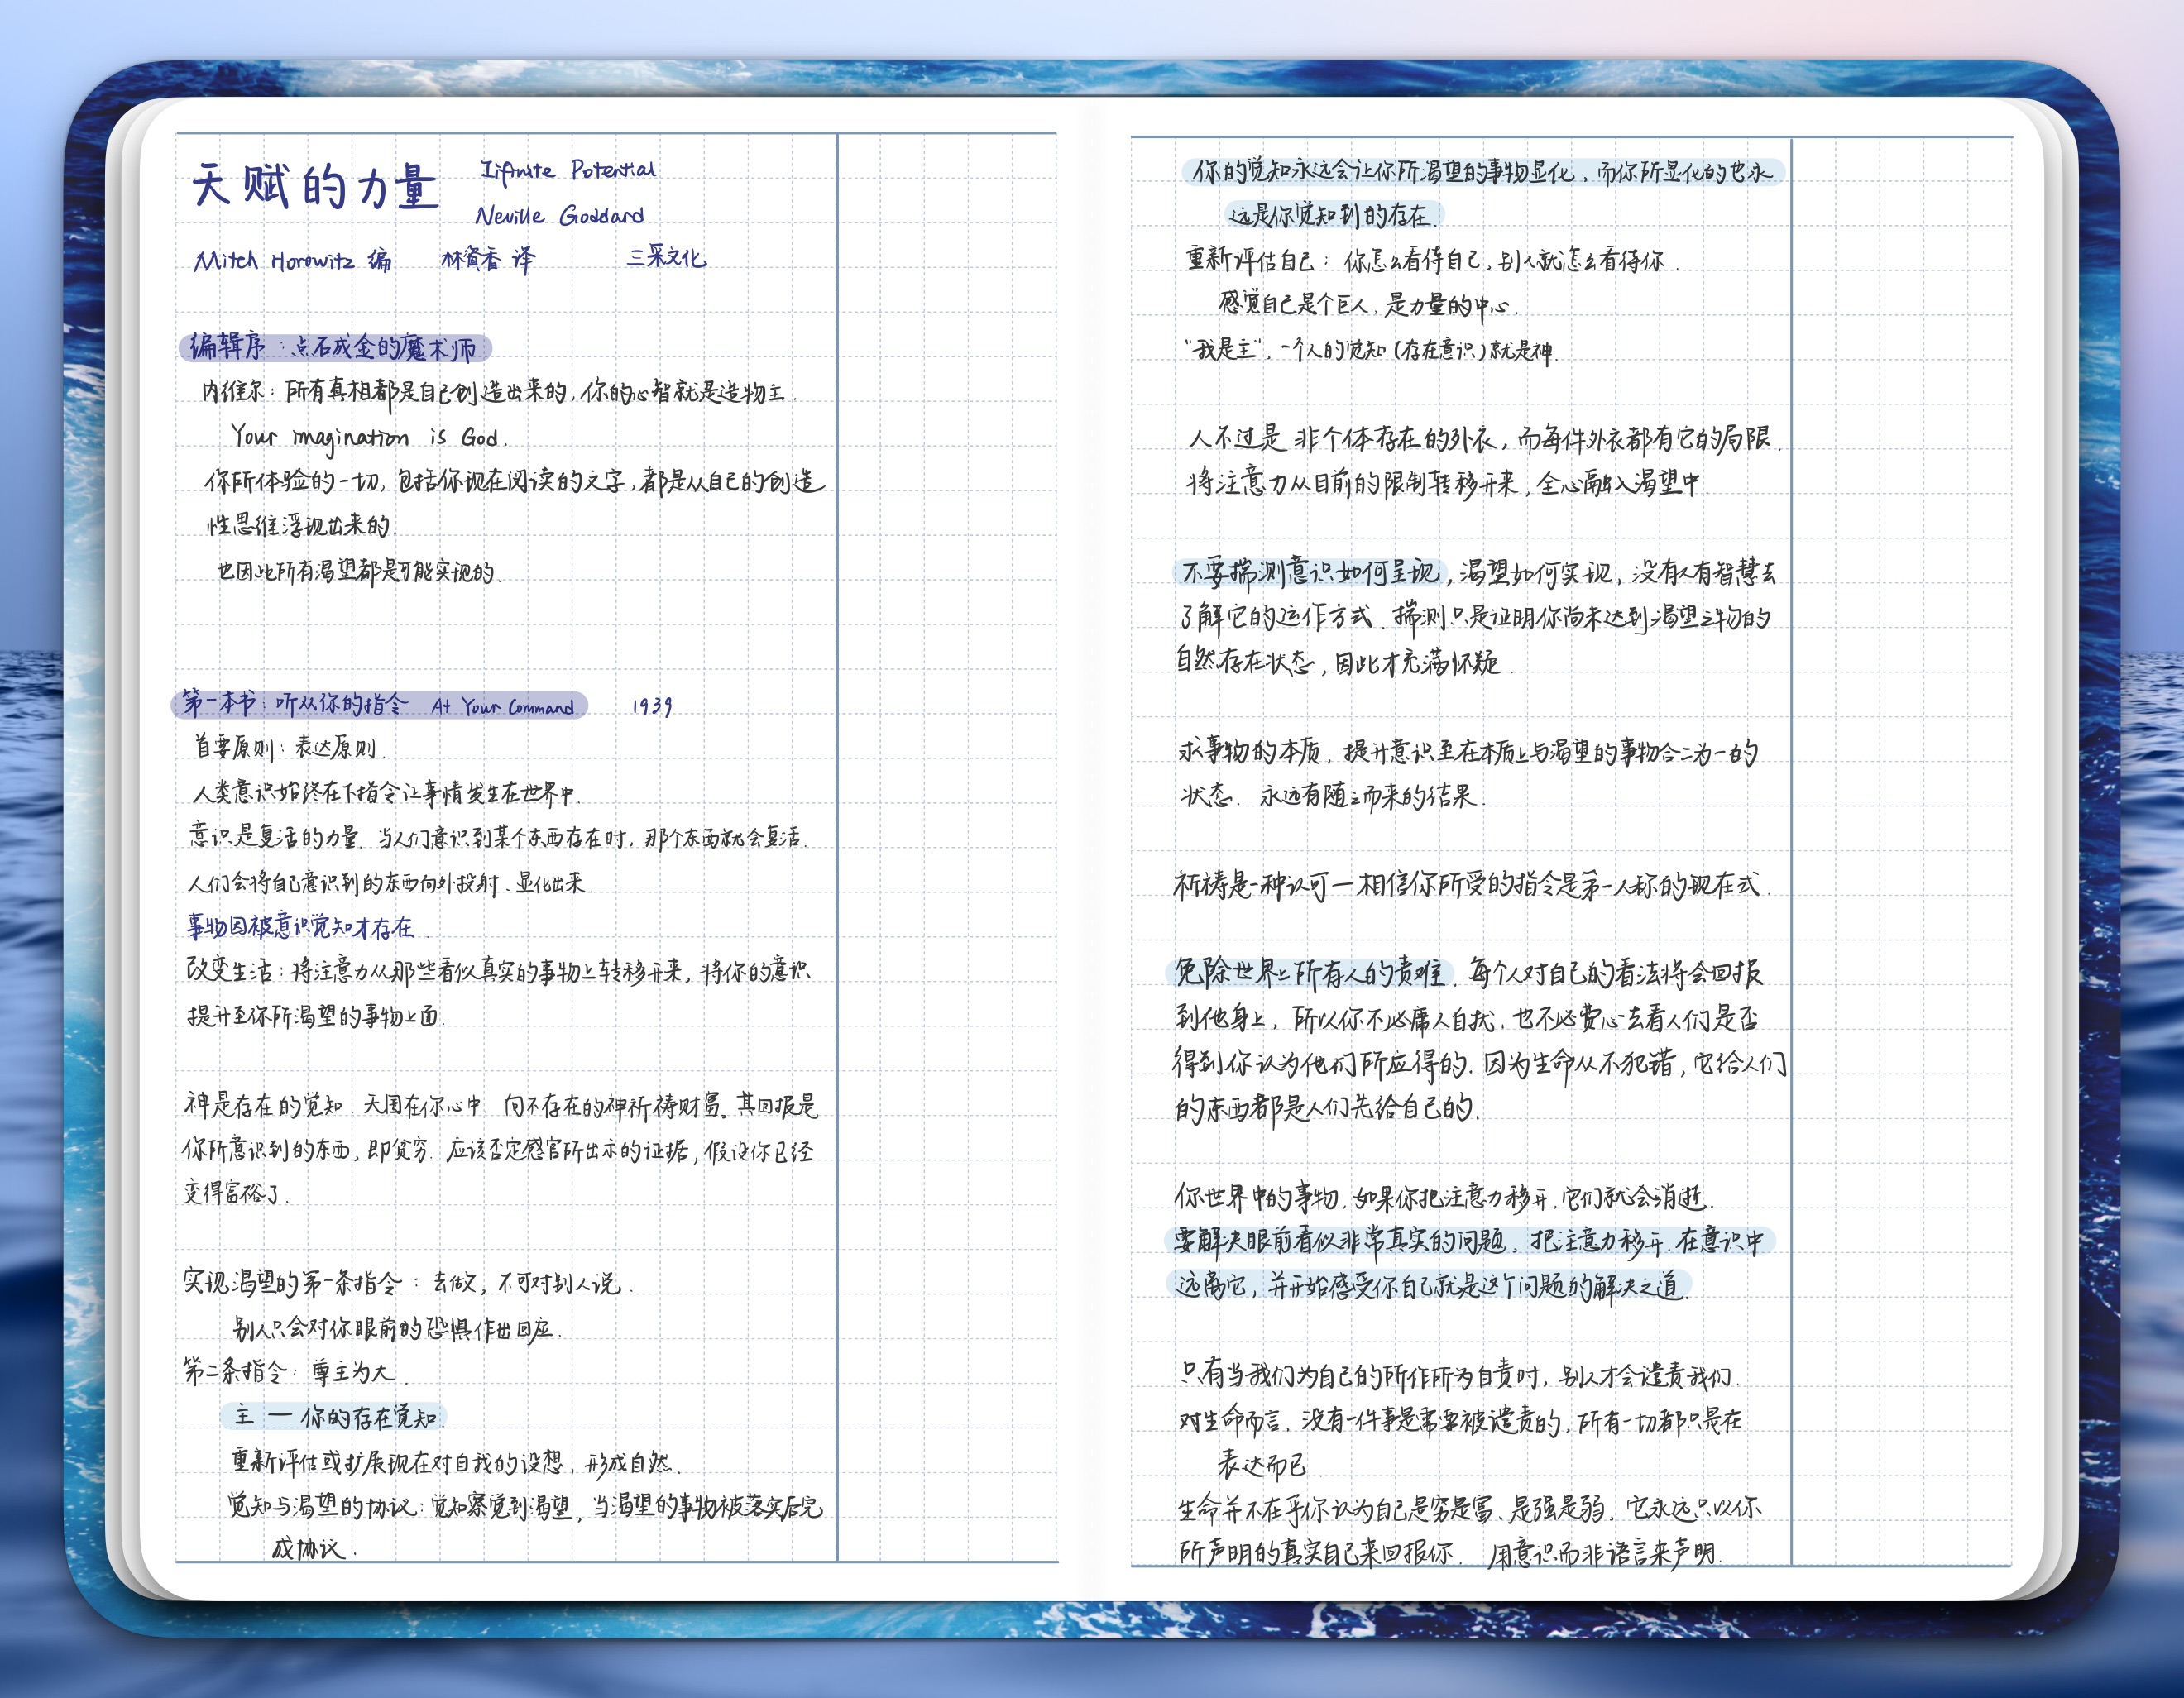 天赋的力量
Iifinite Potential
Neville Goddard
Mitch Horowitz 编 林资香 译 三采文化
编辑序：点石成金的魔术师
内维尔：所有真相都是自己创造出来的，你的心智就是造物主.
Your imagination is God.
你所体验的一切，包括你现在阅读的文字，都是从自己的创造
性思维浮现出来的.
也因此所有渴望都是可能实现的.
第一本书：听从你的指令 At Your Command 1939
首要原则：表达原则.
人类意识始终在下指令让事情发生在世界中.
意识是复活的力量. 当人们意识到某个东西存在时，那个东西就会复活.
人们会将自己意识到的东西向外投射、显化出来.
事物因被意识觉知才存在.
改变生活：将注意力从那些看似真实的事物上转移开来，将你的意识
提升至你所渴望的事物上面.
神是存在的觉知. 天国在你心中. 向不存在的神祈祷财富，其回报是
你所意识到的东西，即贫穷. 应该否定感官所出示的证据，假设你已经
变得富裕了.
实现渴望的第一条指令：去做，不可对别人说.
别人只会对你眼前的恐惧作出回应.
第二条指令：尊主为大.
主 — 你的存在觉知.
重新评估或扩展现在对自我的设想，形成自然.
觉知与渴望的协议：觉知察觉到渴望，当渴望的事物被落实后完
成协议.
你的觉知永远会让你所渴望的事物显化，而你所显化的也永
远是你觉知到的存在.
重新评估自己：你怎么看待自己，别人就怎么看待你.
感觉自己是个巨人，是力量的中心.
“我是主”，一个人的觉知（存在意识）就是神.
人不过是非个体存在的外衣，而每件外衣都有它的局限.
将注意力从目前的限制转移开来，全心融入渴望中.
不要揣测意识如何呈现，渴望如何实现，没有人有智慧去
了解它的运作方式. 揣测只是证明你尚未达到渴望之物的
自然存在状态，因此才充满怀疑
求事物的本质，提升意识至在本质上与渴望的事物合二为一的
状态. 永远有随之而来的结果.
祈祷是一种认可—相信你所受的指令是第一人称的现在式.
免除世界上所有人的责难. 每个人对自己的看法将会回报
到他身上，所以你不必庸人自扰，也不必费心去看人们是否
得到你认为他们所应得的. 因为生命从不犯错，它给人们
的东西都是人们先给自己的.
你世界中的事物，如果你把注意力移开，它们就会消逝.
要解决眼前看似非常真实的问题，把注意力移开，在意识中
远离它，并开始感受你自己就是这个问题的解决之道.
只有当我们为自己的所作所为自责时，别人才会谴责我们.
对生命而言，没有一件事是需要被谴责的，所有一切都只是在
表达而已
生命并不在乎你认为自己是穷是富、是强是弱，它永远只以你
所声明的真实自己来回报你. 用意识而非语言来声明.